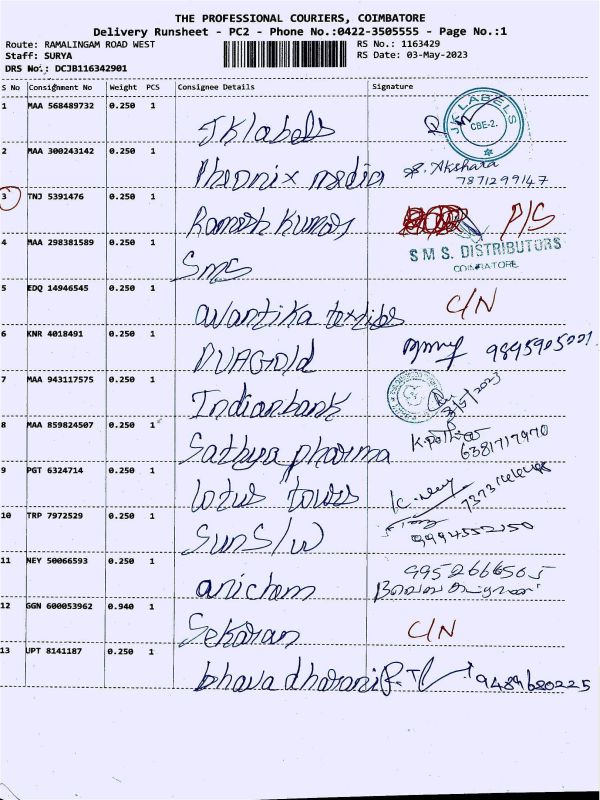 THE PROFESSIONAL COURIERS, COIMBATORE
Delivery Runsheet - PC2 - Phone No.:0422-3505555 - Page No.:1
Route: RAMALINGAM ROAD WEST
Staff: SURYA
DRS No.: DCJB116342901
RS No.: 1163429
RS Date: 03-May-2023
S No Consignment No Weight PCS Consignee Details Signature
1 MAA 568489732 0.250 1 JK labels
JK LABELS CBE-2.
2 MAA 300243142 0.250 1 Pheonix media S. Akshara
7871299147
3 TNJ 5391476 0.250 1 Ramesh Kumar P/S
4 MAA 298381589 0.250 1 Sms S M S. DISTRIBUTORS
COIMBATORE
5 EDQ 14946545 0.250 1 avantika textiles C/N
6 KNR 4018491 0.250 1 DVAGold
7 MAA 943117575 0.250 1 Indian bank 3/5/2023
8 MAA 859824507 0.250 1 Sathya pharma
6381717970
9 PGT 6324714 0.250 1 lotus tours
10 TRP 7972529 0.250 1 Sun S/W 9994552150
11 NEY 50066593 0.250 1 anicham 9952666505
12 GGN 600053962 0.940 1 Sekaran C/N
13 UPT 8141187 0.250 1 bhavadharani 9489680225